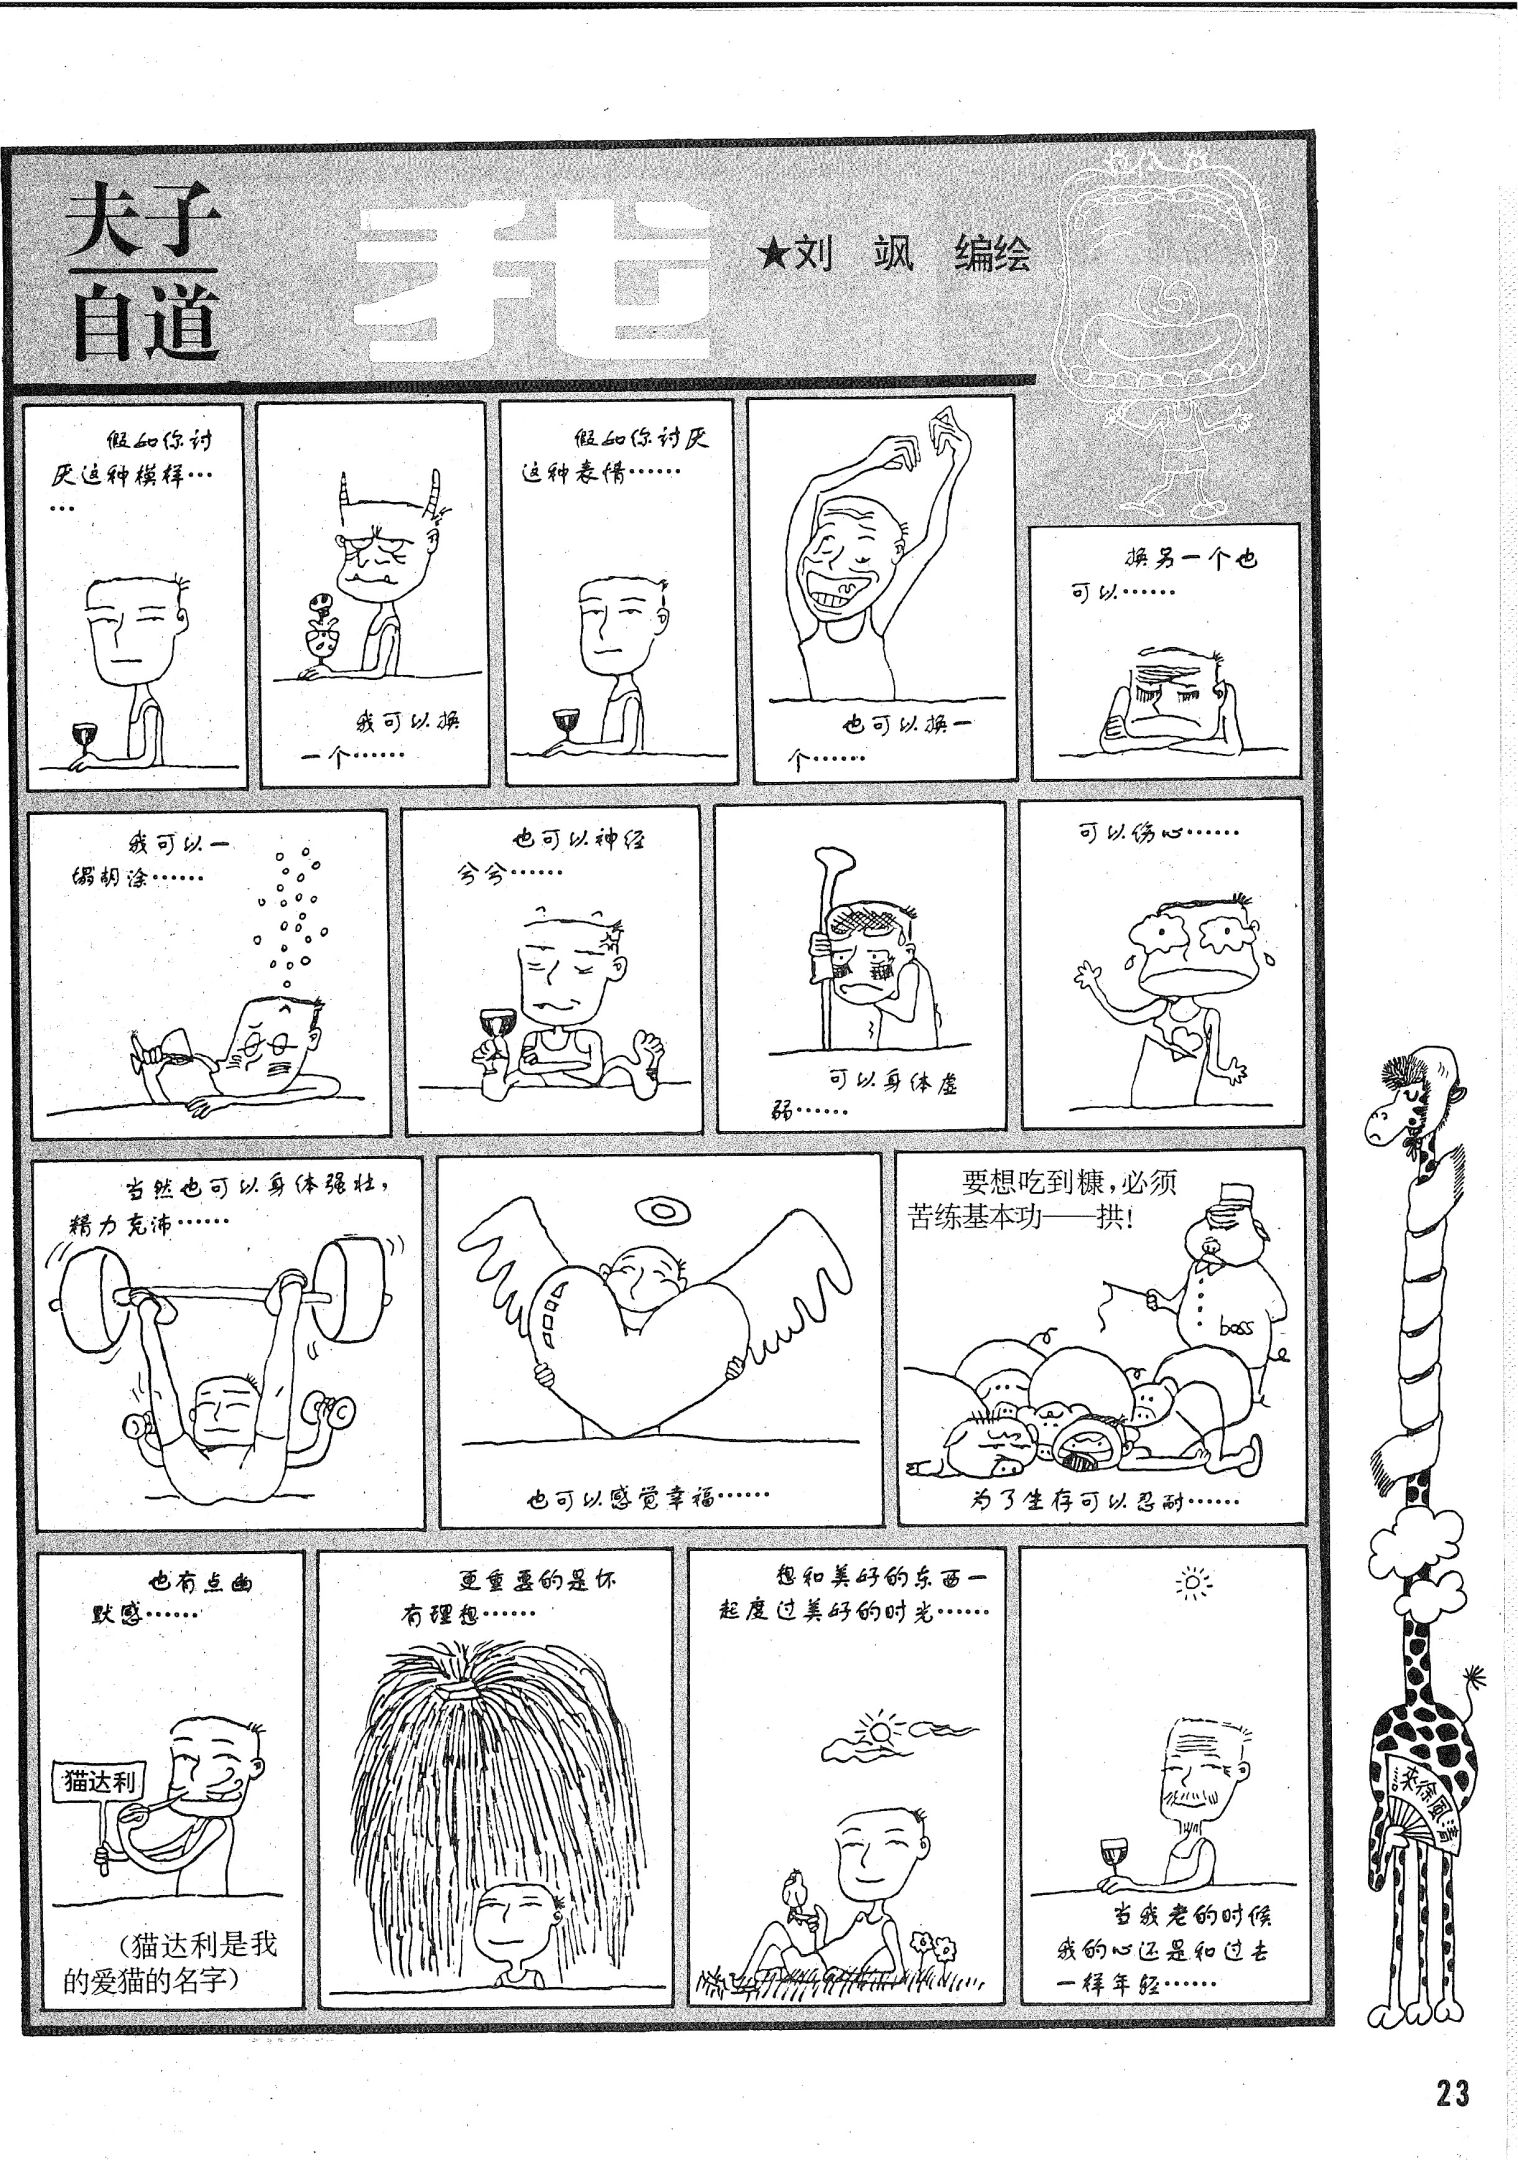 夫子
自道
我
★刘 飒 编绘
假如你讨
厌这种模样…
…
我可以换
一个……
假如你讨厌
这种表情……
也可以换一
个……
换另一个也
可以……
我可以一
塌胡涂……
也可以神经
兮兮……
可以身体虚
弱……
可以伤心……
当然也可以身体强壮，
精力充沛……
也可以感觉幸福……
要想吃到糠，必须
苦练基本功——拱！
boss
为了生存可以忍耐……
也有点幽
默感……
猫达利
（猫达利是我
的爱猫的名字）
更重要的是怀
有理想……
想和美好的东西一
起度过美好的时光……
当我老的时候
我的心还是和过去
一样年轻……
清風徐來
23